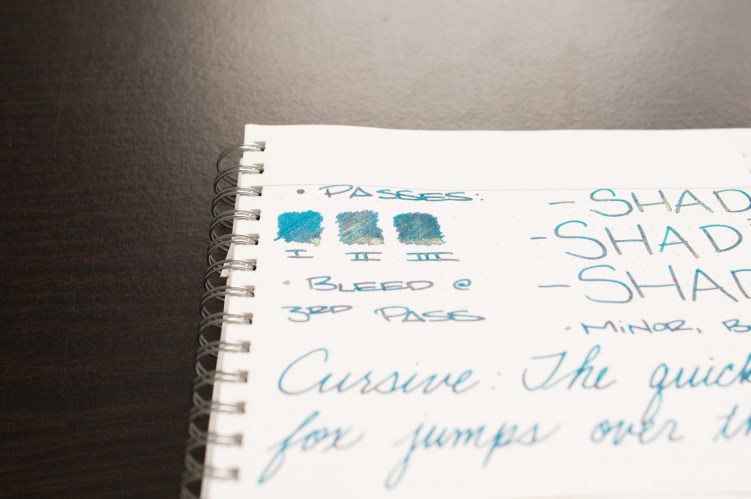 • PASSES:
I II III
• BLEED @
3RD PASS
- SHAD
- SHAD
- SHAD
• MINOR, B
Cursive: The quick
fox jumps over th